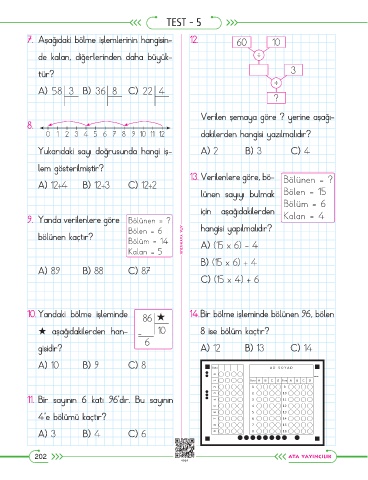 TEST - 5
7. Aşağıdaki bölme işlemlerinin hangisin-
de kalan, diğerlerinden daha büyük-
tür?
A) 58 3 B) 36 8 C) 22 4
8.
0 1 2 3 4 5 6 7 8 9 10 11 12
Yukarıdaki sayı doğrusunda hangi iş-
lem gösterilmiştir?
A) 12÷4 B) 12÷3 C) 12÷2
9. Yanda verilenlere göre
bölünen kaçtır?
Bölünen = ?
Bölen = 6
Bölüm = 14
Kalan = 5
A) 89 B) 88 C) 87
10. Yandaki bölme işleminde
★ aşağıdakilerden han-
gisidir?
86 ★
- 10
6
A) 10 B) 9 C) 8
11. Bir sayının 6 katı 96'dır. Bu sayının
4'e bölümü kaçtır?
A) 3 B) 4 C) 6
12.
60 10
÷
3
÷
?
Verilen şemaya göre ? yerine aşağı-
dakilerden hangisi yazılmalıdır?
A) 2 B) 3 C) 4
13. Verilenlere göre, bö-
lünen sayıyı bulmak
için aşağıdakilerden
hangisi yapılmalıdır?
Bölünen = ?
Bölen = 15
Bölüm = 6
Kalan = 4
A) (15 x 6) - 4
B) (15 x 6) ÷ 4
C) (15 x 4) + 6
14. Bir bölme işleminde bölünen 96, bölen
8 ise bölüm kaçtır?
A) 12 B) 13 C) 14
AD SOYAD
202
ATA YAYINCILIK